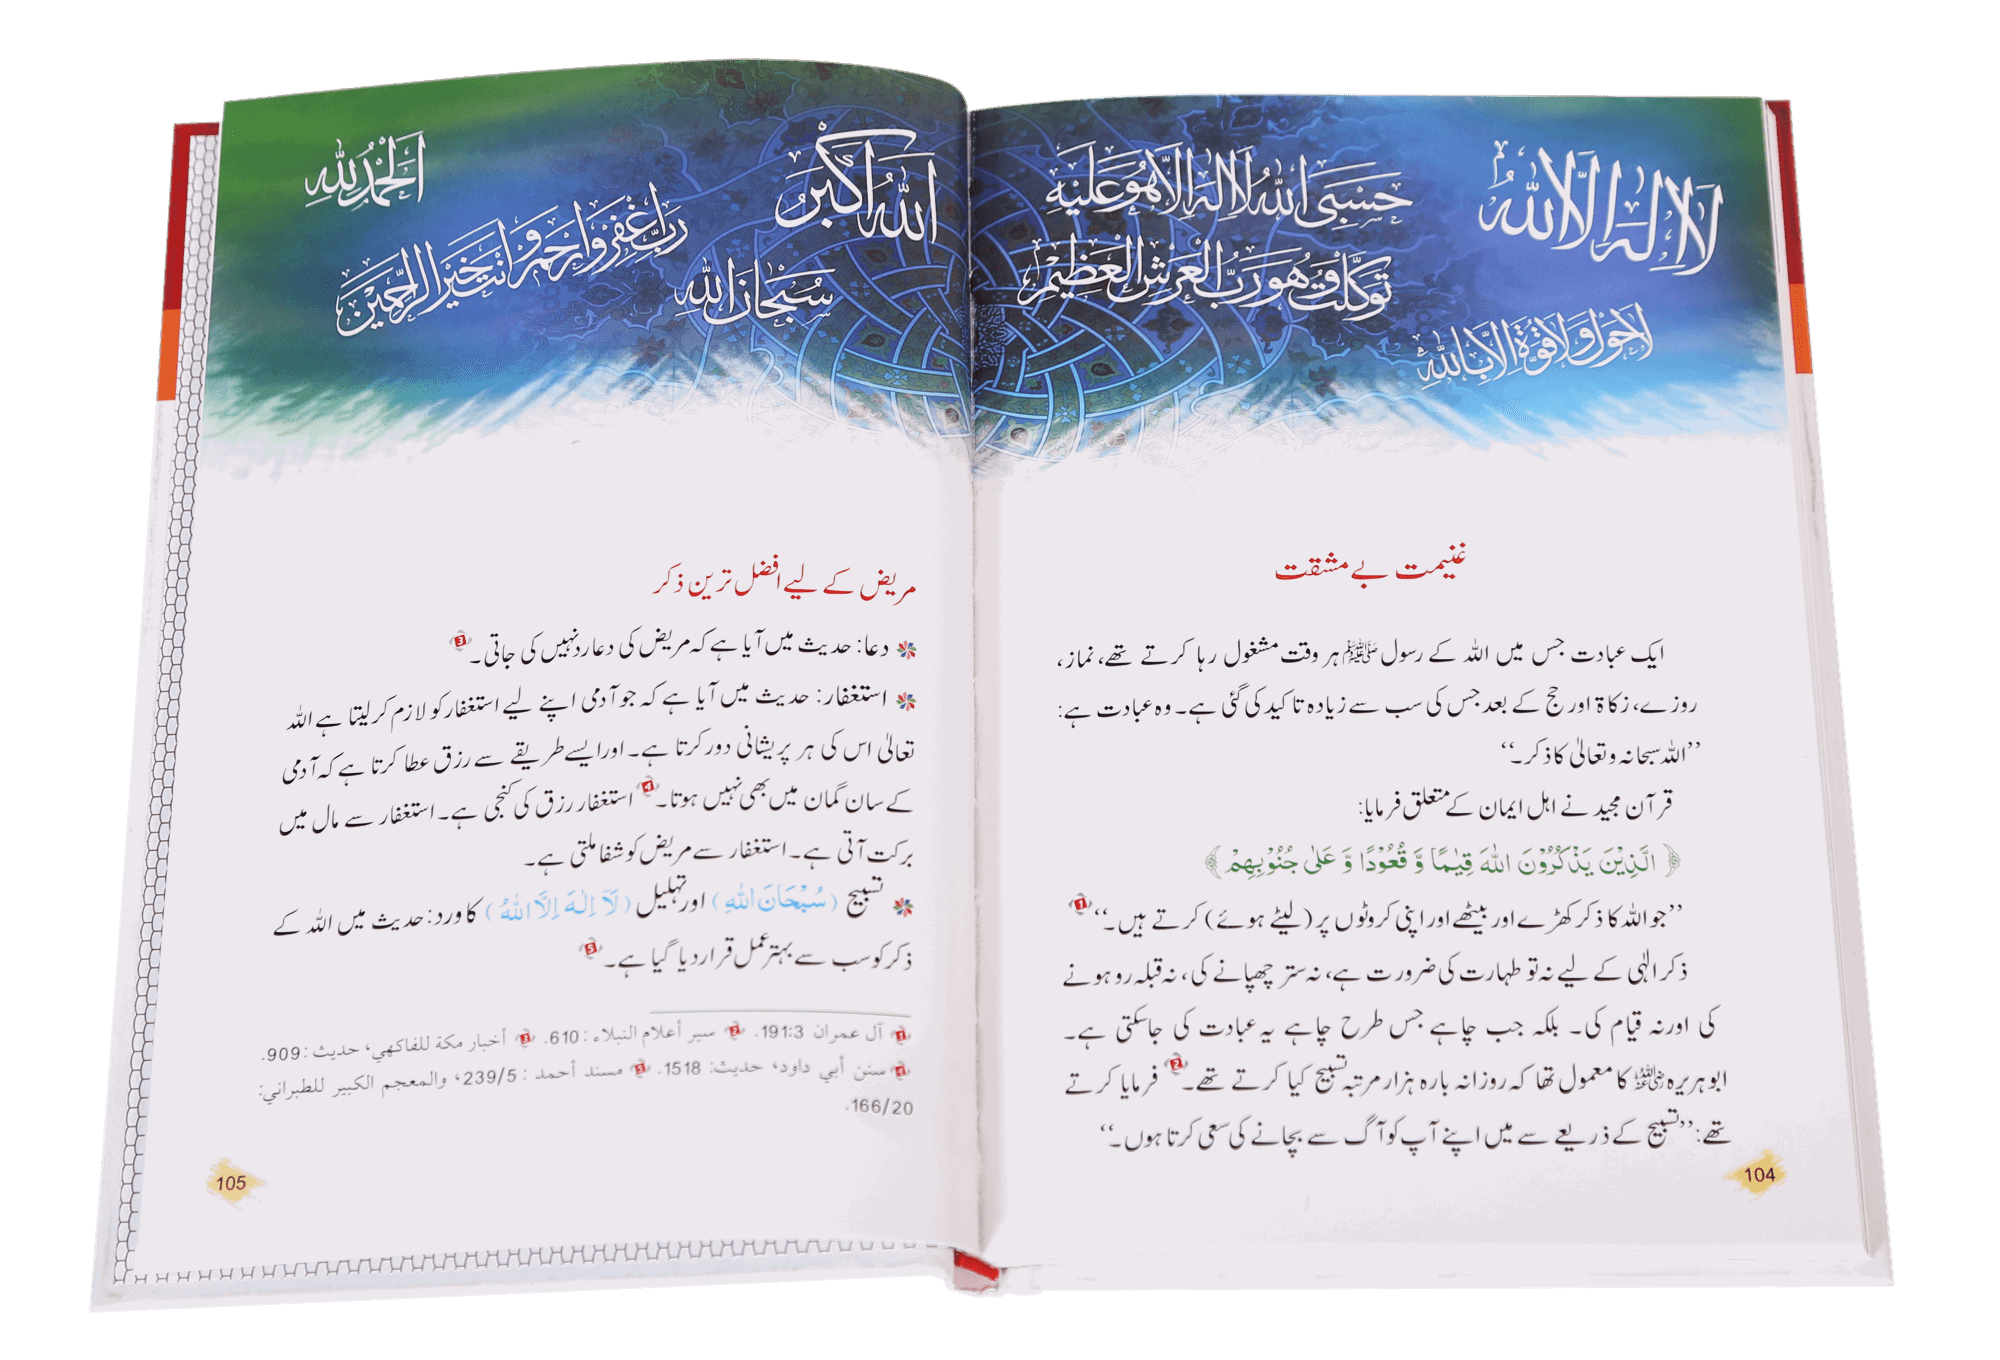 لا اله الا الله
حسبي الله لا اله الا هو عليه
توكلت وهو رب العرش العظيم
لا حول ولا قوة الا بالله
غنیمت بے مشقت
ایک عبادت جس میں اللہ کے رسول ﷺ ہر وقت مشغول رہا کرتے تھے، نماز،
روزے، زکاۃ اور حج کے بعد جس کی سب سے زیادہ تاکید کی گئی ہے۔ وہ عبادت ہے:
’’اللہ سبحانہ وتعالیٰ کا ذکر۔‘‘
قرآن مجید نے اہل ایمان کے متعلق فرمایا:
﴿ الَّذِیْنَ یَذْكُرُوْنَ اللّٰهَ قِیٰمًا وَّ قُعُوْدًا وَّ عَلٰی جُنُوْبِهِمْ ﴾
’’جو اللہ کا ذکر کھڑے اور بیٹھے اور اپنی کروٹوں پر (لیٹے ہوئے) کرتے ہیں۔‘‘ 1
ذکر الٰہی کے لیے نہ تو طہارت کی ضرورت ہے، نہ ستر چھپانے کی، نہ قبلہ رو ہونے
کی اور نہ قیام کی۔ بلکہ جب چاہے جس طرح چاہے یہ عبادت کی جاسکتی ہے۔
ابو ہریرہ رضی اللہ عنہ کا معمول تھا کہ روزانہ بارہ ہزار مرتبہ تسبیح کیا کرتے تھے۔ 2 فرمایا کرتے
تھے: ’’تسبیح کے ذریعے سے میں اپنے آپ کو آگ سے بچانے کی سعی کرتا ہوں۔‘‘
104
الله اكبر
الحمد لله
رب اغفر وارحم وانت خير الراحمين
سبحان الله
مریض کے لیے افضل ترین ذکر
دعا: حدیث میں آیا ہے کہ مریض کی دعا رد نہیں کی جاتی۔ 3
استغفار: حدیث میں آیا ہے کہ جو آدمی اپنے لیے استغفار کو لازم کرلیتا ہے اللہ
تعالیٰ اس کی ہر پریشانی دور کرتا ہے۔ اور ایسے طریقے سے رزق عطا کرتا ہے کہ آدمی
کے سان گمان میں بھی نہیں ہوتا۔ 4 استغفار رزق کی کنجی ہے۔ استغفار سے مال میں
برکت آتی ہے۔ استغفار سے مریض کو شفا ملتی ہے۔
تسبیح (سُبْحَانَ اللّٰهِ) اور تہلیل (لَآ اِلٰهَ اِلَّا اللّٰهُ) کا ورد: حدیث میں اللہ کے
ذکر کو سب سے بہتر عمل قرار دیا گیا ہے۔ 5
1 آل عمران 191:3. 2 سير أعلام النبلاء: 610. 3 أخبار مكة للفاكهي، حديث: 909.
4 سنن أبي داود، حديث: 1518. 5 مسند أحمد: 239/5، والمعجم الكبير للطبراني:
166/20.
105